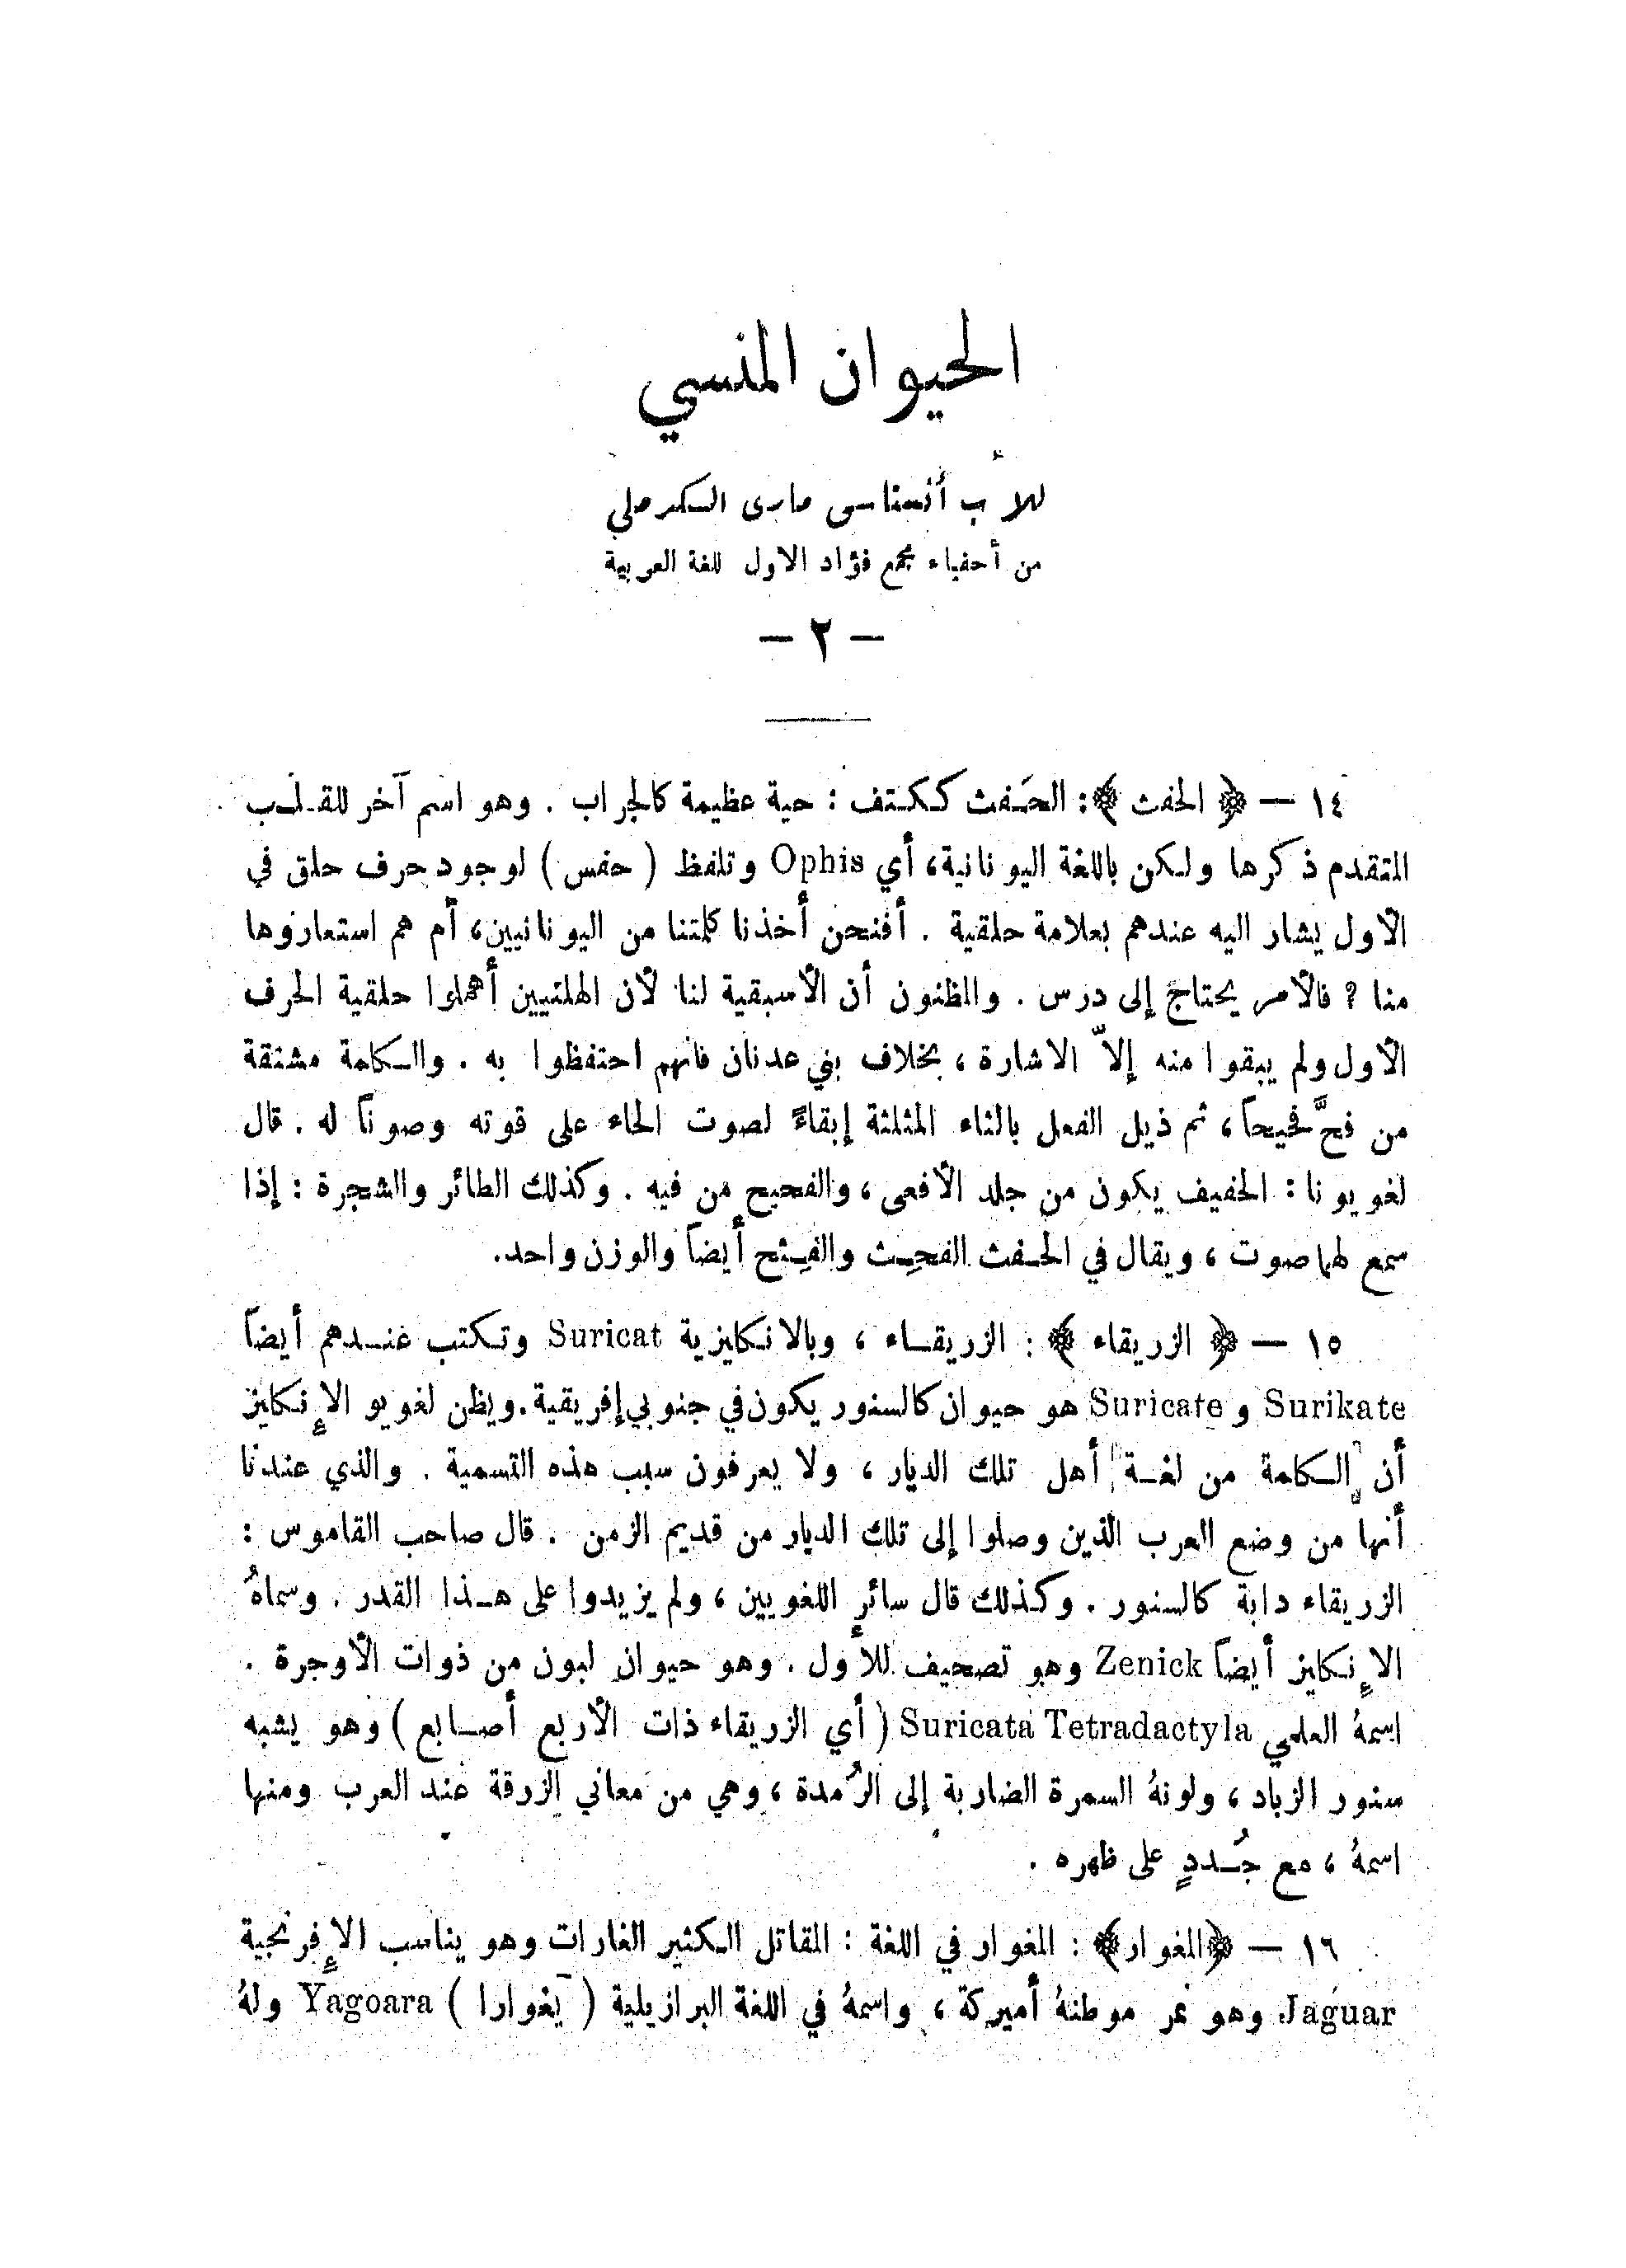 الحيوان المنسي
للأب أنستاس ماري الكرملي
من أحفياء مجمع فؤاد الاول للغة العربية
— ٢ —
١٤ — ﴿ الحفث ﴾: الحَفث ككتف : حية عظيمة كالجراب . وهو اسم آخر للقلب
المتقدم ذكرها ولكن باللغة اليونانية، أي Ophis وتلفظ ( حفس ) لوجود حرف حلق في
الأول يشار اليه عندهم بعلامة حلقية . أفنحن أخذنا كلمتنا من اليونانيين، أم هم استعاروها
منا ؟ فالأمر يحتاج إلى درس . والمظنون أن الأسبقية لنا لأن الهلنيين أهملوا حلقية الحرف
الأول ولم يبقوا منه إلاّ الاشارة ، بخلاف بني عدنان فانهم احتفظوا به . والكلمة مشتقة
من فحَّ فحيحاً ، ثم ذيل الفعل بالثاء المثلثة إبقاءً لصوت الحاء على قوته وصوناً له . قال
لغويونا : الحفيف يكون من جلد الأفعى ، والفحيح من فيه . وكذلك الطائر والشجرة : إذا
سمع لهما صوت ، ويقال في الحفث الفحِث والفِثح أيضاً والوزن واحد.
١٥ — ﴿ الزريقاء ﴾ : الزريقاء ، وبالانكليزية Suricat وتكتب عندهم أيضاً
Surikate و Suricate هو حيوان كالسنور يكون في جنوبي إفريقية. ويظن لغويو الإنكليز
أن الكلمة من لغة أهل تلك الديار ، ولا يعرفون سبب هذه التسمية . والذي عندنا
أنها من وضع العرب الذين وصلوا إلى تلك الديار من قديم الزمن . قال صاحب القاموس :
الزريقاء دابة كالسنور . وكذلك قال سائر اللغويين ، ولم يزيدوا على هذا القدر . وسماهُ
الإنكليز أيضاً Zenick وهو تصحيف للأول . وهو حيوان لبون من ذوات الأوجرة .
اسمهُ العلمي Suricata Tetradactyla ( أي الزريقاء ذات الأربع أصابع ) وهو يشبه
سنور الزباد ، ولونهُ السمرة الضاربة إلى الرُمدة ، وهي من معاني الزرقة عند العرب ومنها
اسمهُ ، مع جُددٍ على ظهره .
١٦ — ﴿المغوار﴾ : المغوار في اللغة : المقاتل الكثير الغارات وهو يناسب الإفرنجية
Jaguar وهو نمر موطنهُ أميركة ، واسمهُ في اللغة البرازيلية ( يَغوارا ) Yagoara ولهُ